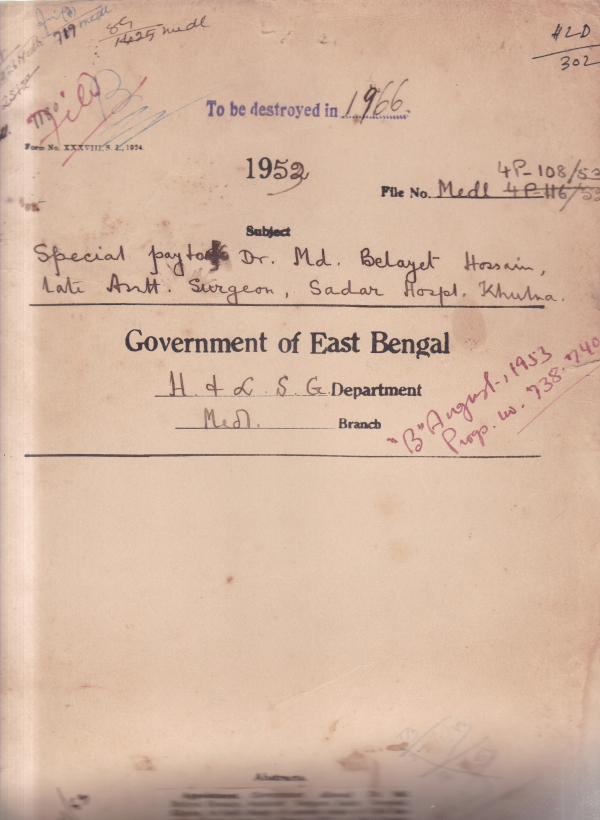 719 Medl
1425 Medl
HLD
302
To be destroyed in 1966.
Form No. XXXVIII
1953
4P-108/53
File No. Medl 4P-116/53
Subject
Special pay to Dr. Md. Belayet Hossain,
late Asstt. Surgeon, Sadar Hospl. Khulna.
Government of East Bengal
H. & L. S. G. Department
Medl. Branch
"B" August, 1953
Progs. no. 738-740
Abstracts.